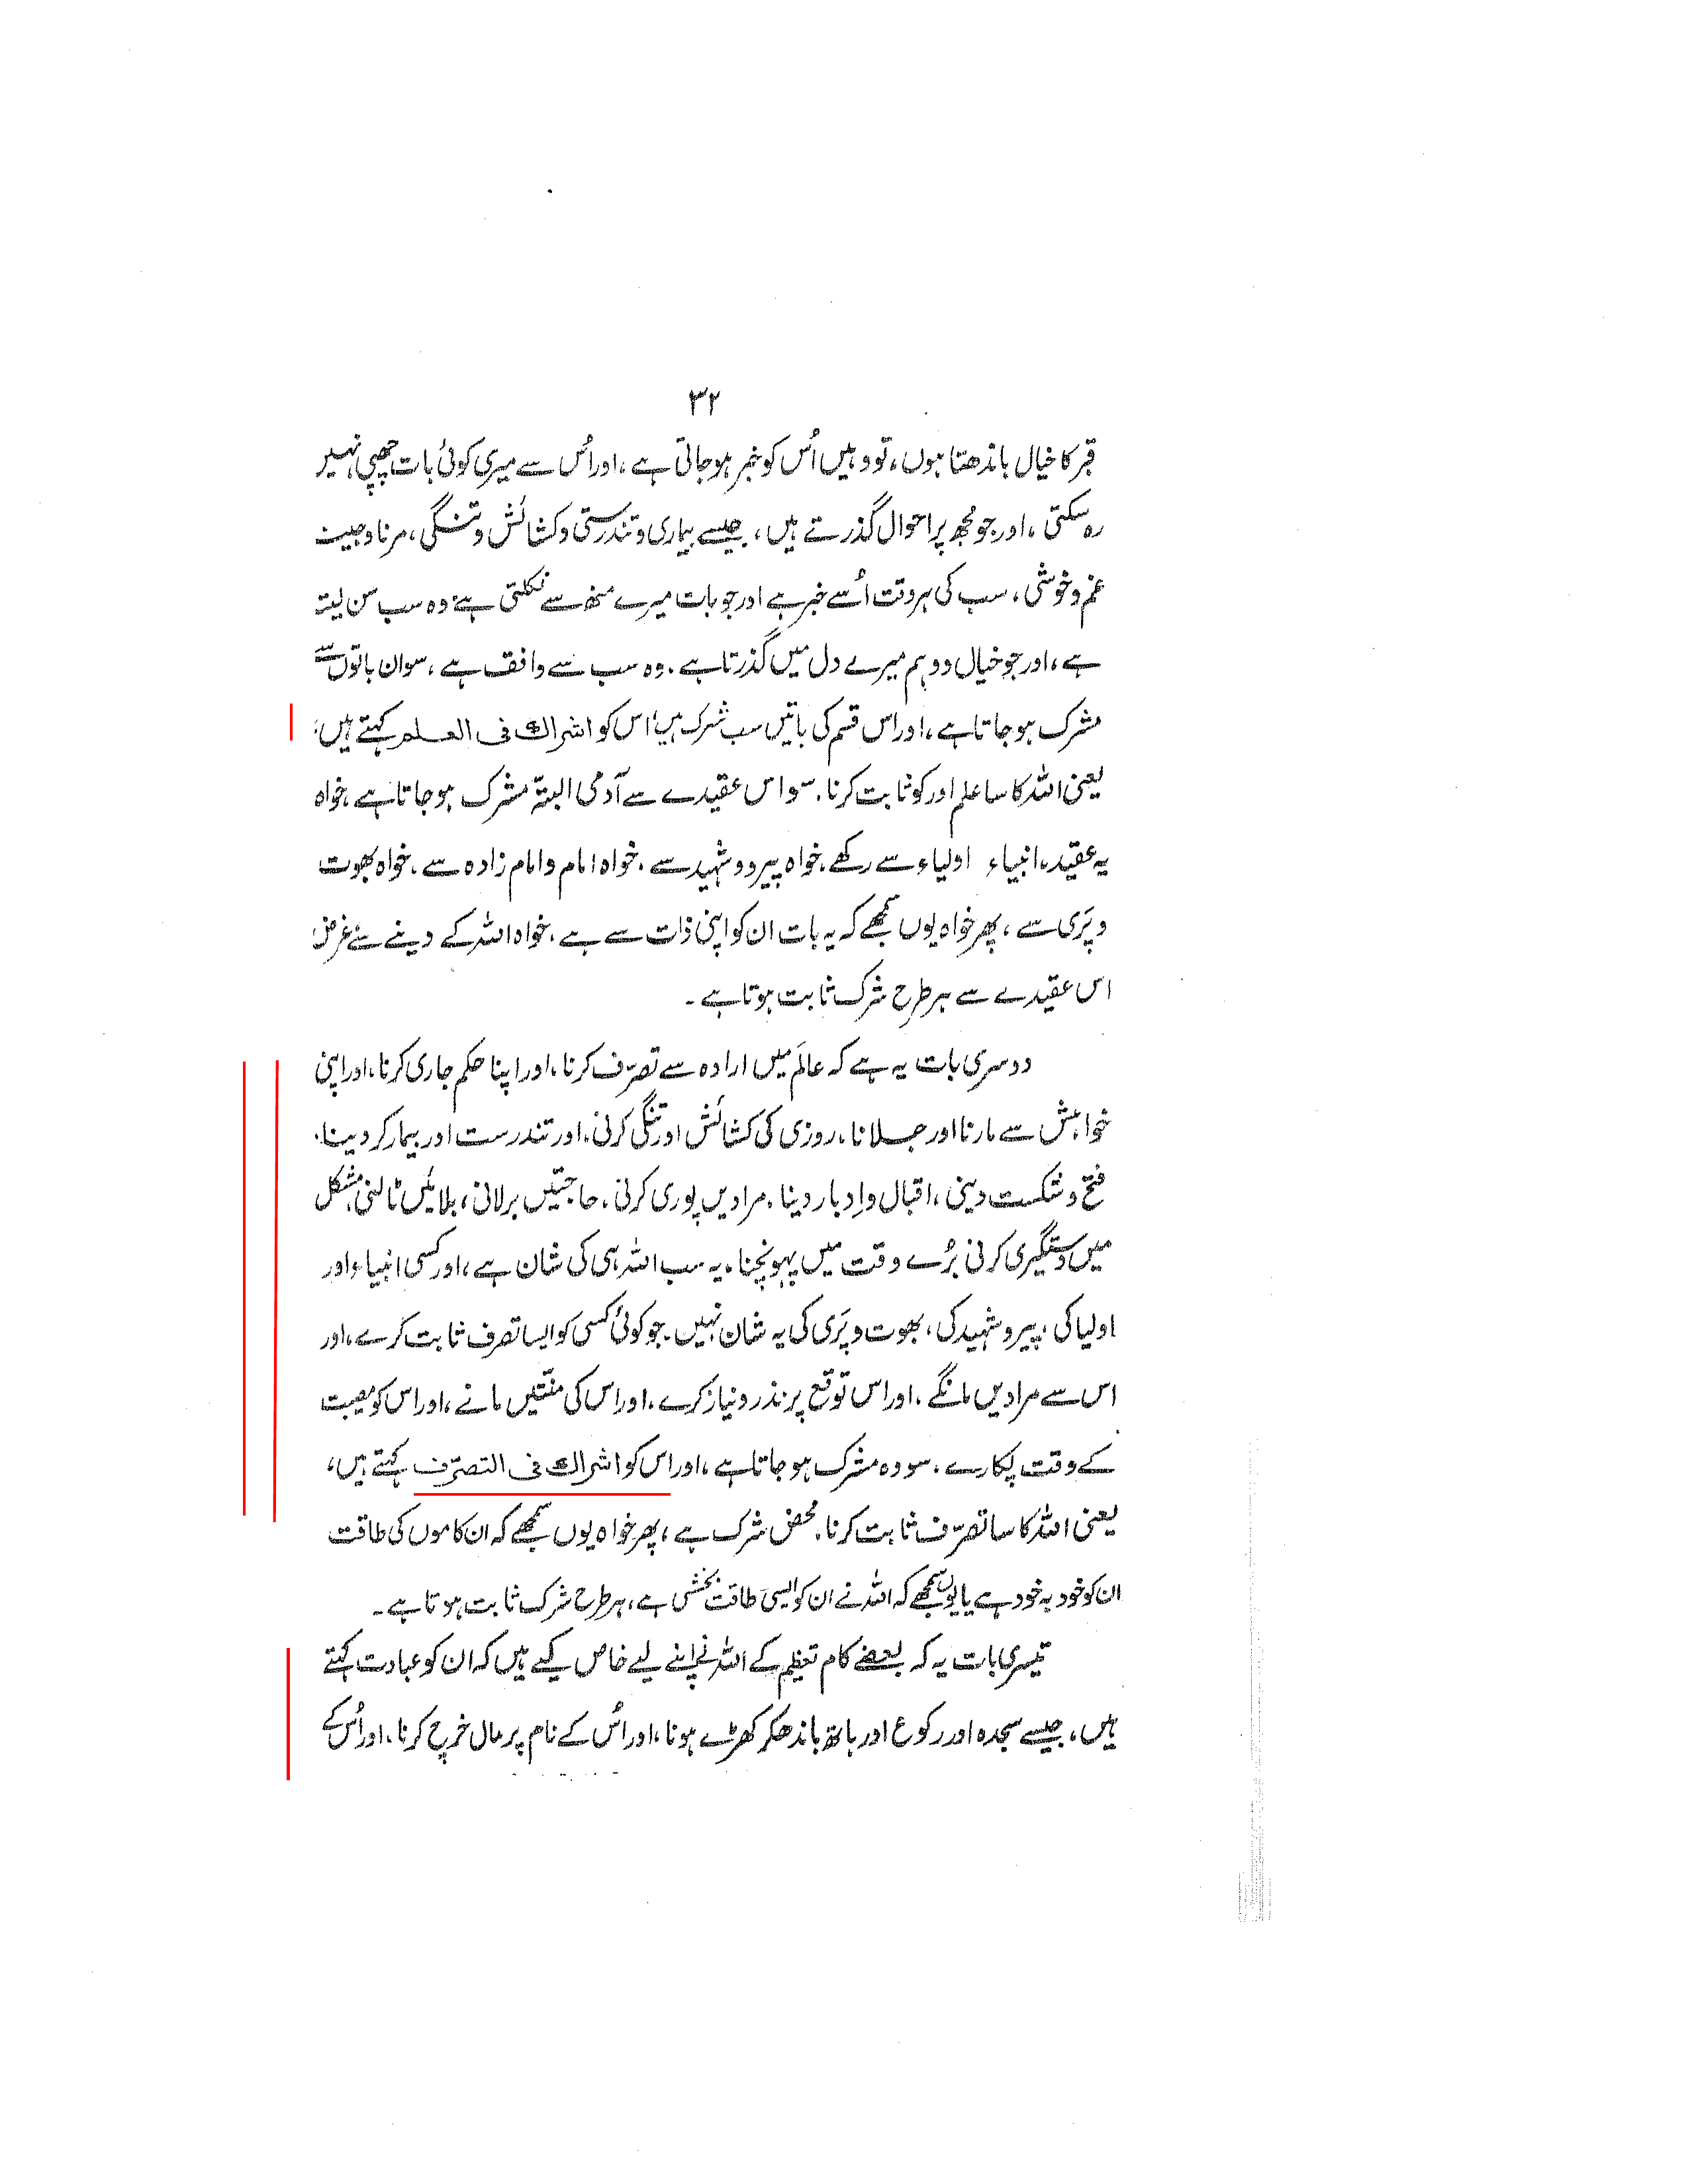 ۳۲
قبر کا خیال باندھتا ہوں، تو وہیں اُس کو خبر ہو جاتی ہے، اور اُس سے میری کوئی بات چھپی نہیں
رہ سکتی، اور جو مجھ پر احوال گذرتے ہیں، جیسے بیماری و تندرستی و کشائش و تنگی، مرنا و جینا
غم و خوشی، سب کی ہر وقت اُسے خبر ہے اور جو بات میرے منھ سے نکلتی ہے، وہ سب سن لیتا
ہے، اور جو خیال و وہم میرے دل میں گذرتا ہے، وہ سب سے واقف ہے، سو ان باتوں سے
مشرک ہو جاتا ہے، اور اس قسم کی باتیں سب شرک ہیں، اس کو اشراك فی العلم کہتے ہیں،
یعنی اللہ کا سا علم اور کو ثابت کرنا، سو اس عقیدے سے آدمی البتّہ مشرک ہو جاتا ہے، خواہ
یہ عقیدہ انبیاء اولیاء سے رکھے، خواہ پیر و شہید سے، خواہ امام و امام زادہ سے، خواہ بھوت
و پَری سے، پھر خواہ یوں سمجھے کہ یہ بات ان کو اپنی ذات سے ہے، خواہ اللہ کے دینے سے، غرض
اس عقیدے سے ہر طرح شرک ثابت ہوتا ہے۔
دوسری بات یہ ہے کہ عالَم میں ارادہ سے تصرّف کرنا، اور اپنا حکم جاری کرنا، اور اپنی
خواہش سے مارنا اور جلانا، روزی کی کشائش اور تنگی کرنی، اور تندرست اور بیمار کر دینا،
فتح و شکست دینی، اقبال و اِدبار دینا، مرادیں پوری کرنی، حاجتیں بر لانی، بلائیں ٹالنی، مشکل
میں دستگیری کرنی بُرے وقت میں پہونچنا، یہ سب اللہ ہی کی شان ہے، اور کسی انبیاء اور
اولیا کی، پیر و شہید کی، بھوت و پَری کی یہ شان نہیں، جو کوئی کسی کو ایسا تصرف ثابت کرے، اور
اس سے مرادیں مانگے، اور اس توقع پر نذر و نیاز کرے، اور اس کی منّتیں مانے، اور اس کو مصیبت
کے وقت پکارے، سو وہ مشرک ہو جاتا ہے، اور اس کو اشراك فی التصرّف کہتے ہیں،
یعنی اللہ کا سا تصرّف ثابت کرنا، محض شرک ہے، پھر خواہ یوں سمجھے کہ ان کاموں کی طاقت
ان کو خود بہ خود ہے یا یوں سمجھے کہ اللہ نے ان کو ایسی طاقت بخشی ہے، ہر طرح شرک ثابت ہوتا ہے۔
تیسری بات یہ کہ بعضے کام تعظیم کے اللہ نے اپنے لیے خاص کیے ہیں کہ ان کو عبادت کہتے
ہیں، جیسے سجدہ اور رکوع اور ہاتھ باندھ کر کھڑے ہونا، اور اُس کے نام پر مال خرچ کرنا، اور اُس کے